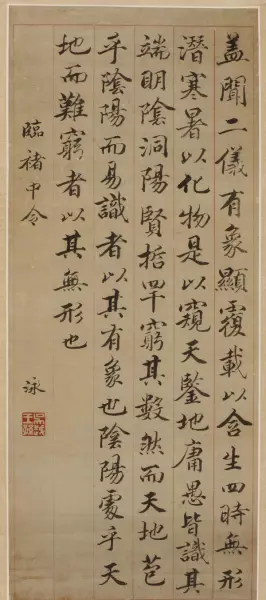 盖聞二儀有象顯覆載以含生四時無形
潛寒暑以化物是以窺天鑒地庸愚皆識其
端明陰洞陽賢哲罕窮其數然而天地苞
乎陰陽而易識者以其有象也陰陽處乎天
地而難窮者以其無形也
臨褚中令
泳